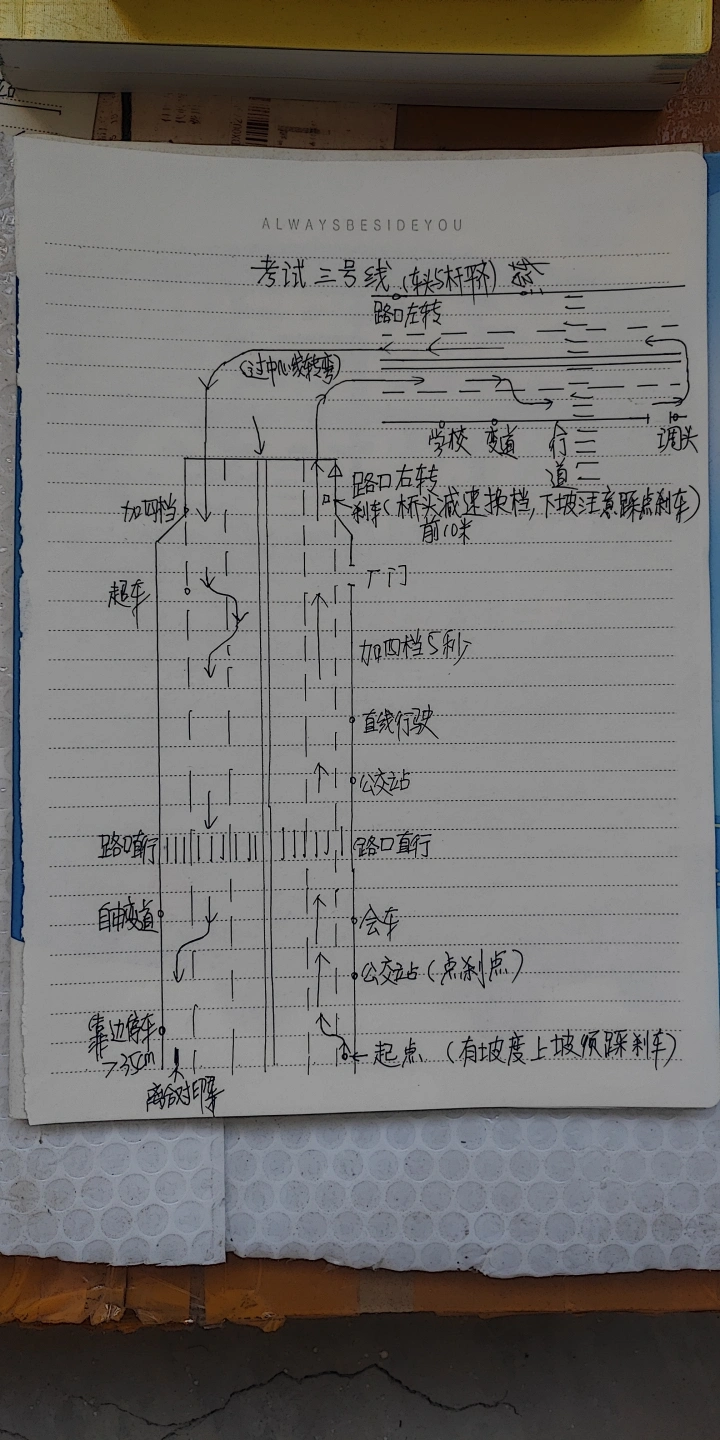 ALWAYSBESIDEYOU
考试三号线（车头与杆平齐）
路口左转
（过中心线转弯）
学校 变道 行道 调头
路口右转
加四档
刹车（桥头减速换档，下坡注意踩点刹车）
前10米
厂门
超车
加四档5秒
直线行驶
公交站
路口直行 路口直行
自由变道 会车
公交站（点刹点）
靠边停车
>35cm
起点（有坡度上坡须踩刹车）